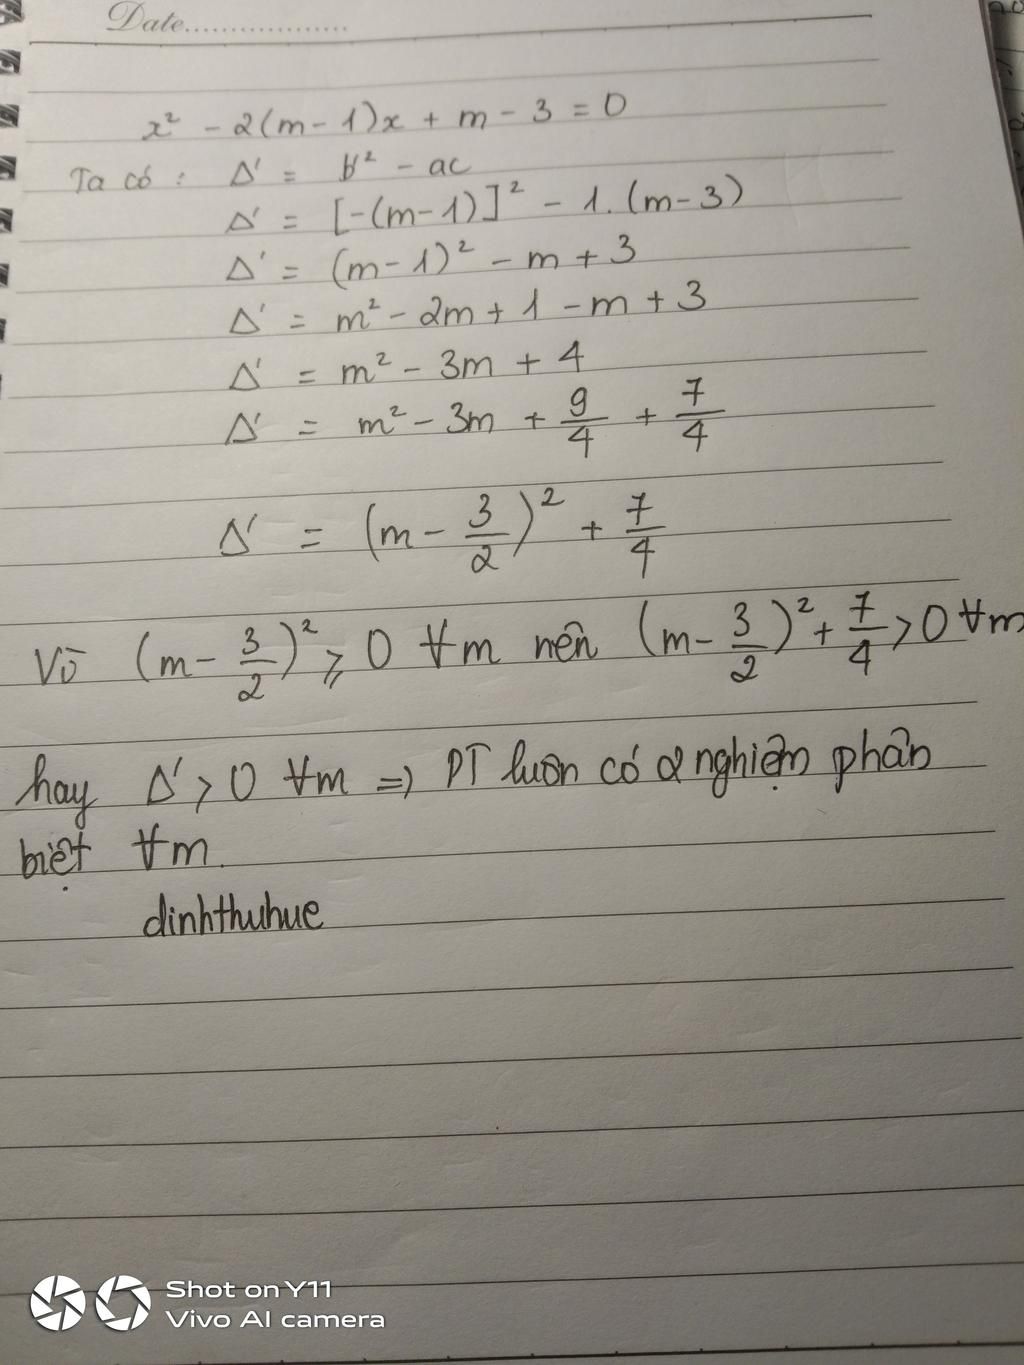 Date.................
x² - 2(m - 1)x + m - 3 = 0
Ta có : Δ' = b'² - ac
Δ' = [-(m-1)]² - 1. (m-3)
Δ' = (m-1)² - m + 3
Δ' = m² - 2m + 1 - m + 3
Δ' = m² - 3m + 4
Δ' = m² - 3m + 9/4 + 7/4
Δ' = (m - 3/2)² + 7/4
Vì (m - 3/2)² ⩾ 0 ∀m nên (m - 3/2)² + 7/4 > 0 ∀m
hay Δ' > 0 ∀m => PT luôn có 2 nghiệm phân
biệt ∀m.
dinhthuhue
Shot on Y11
Vivo AI camera